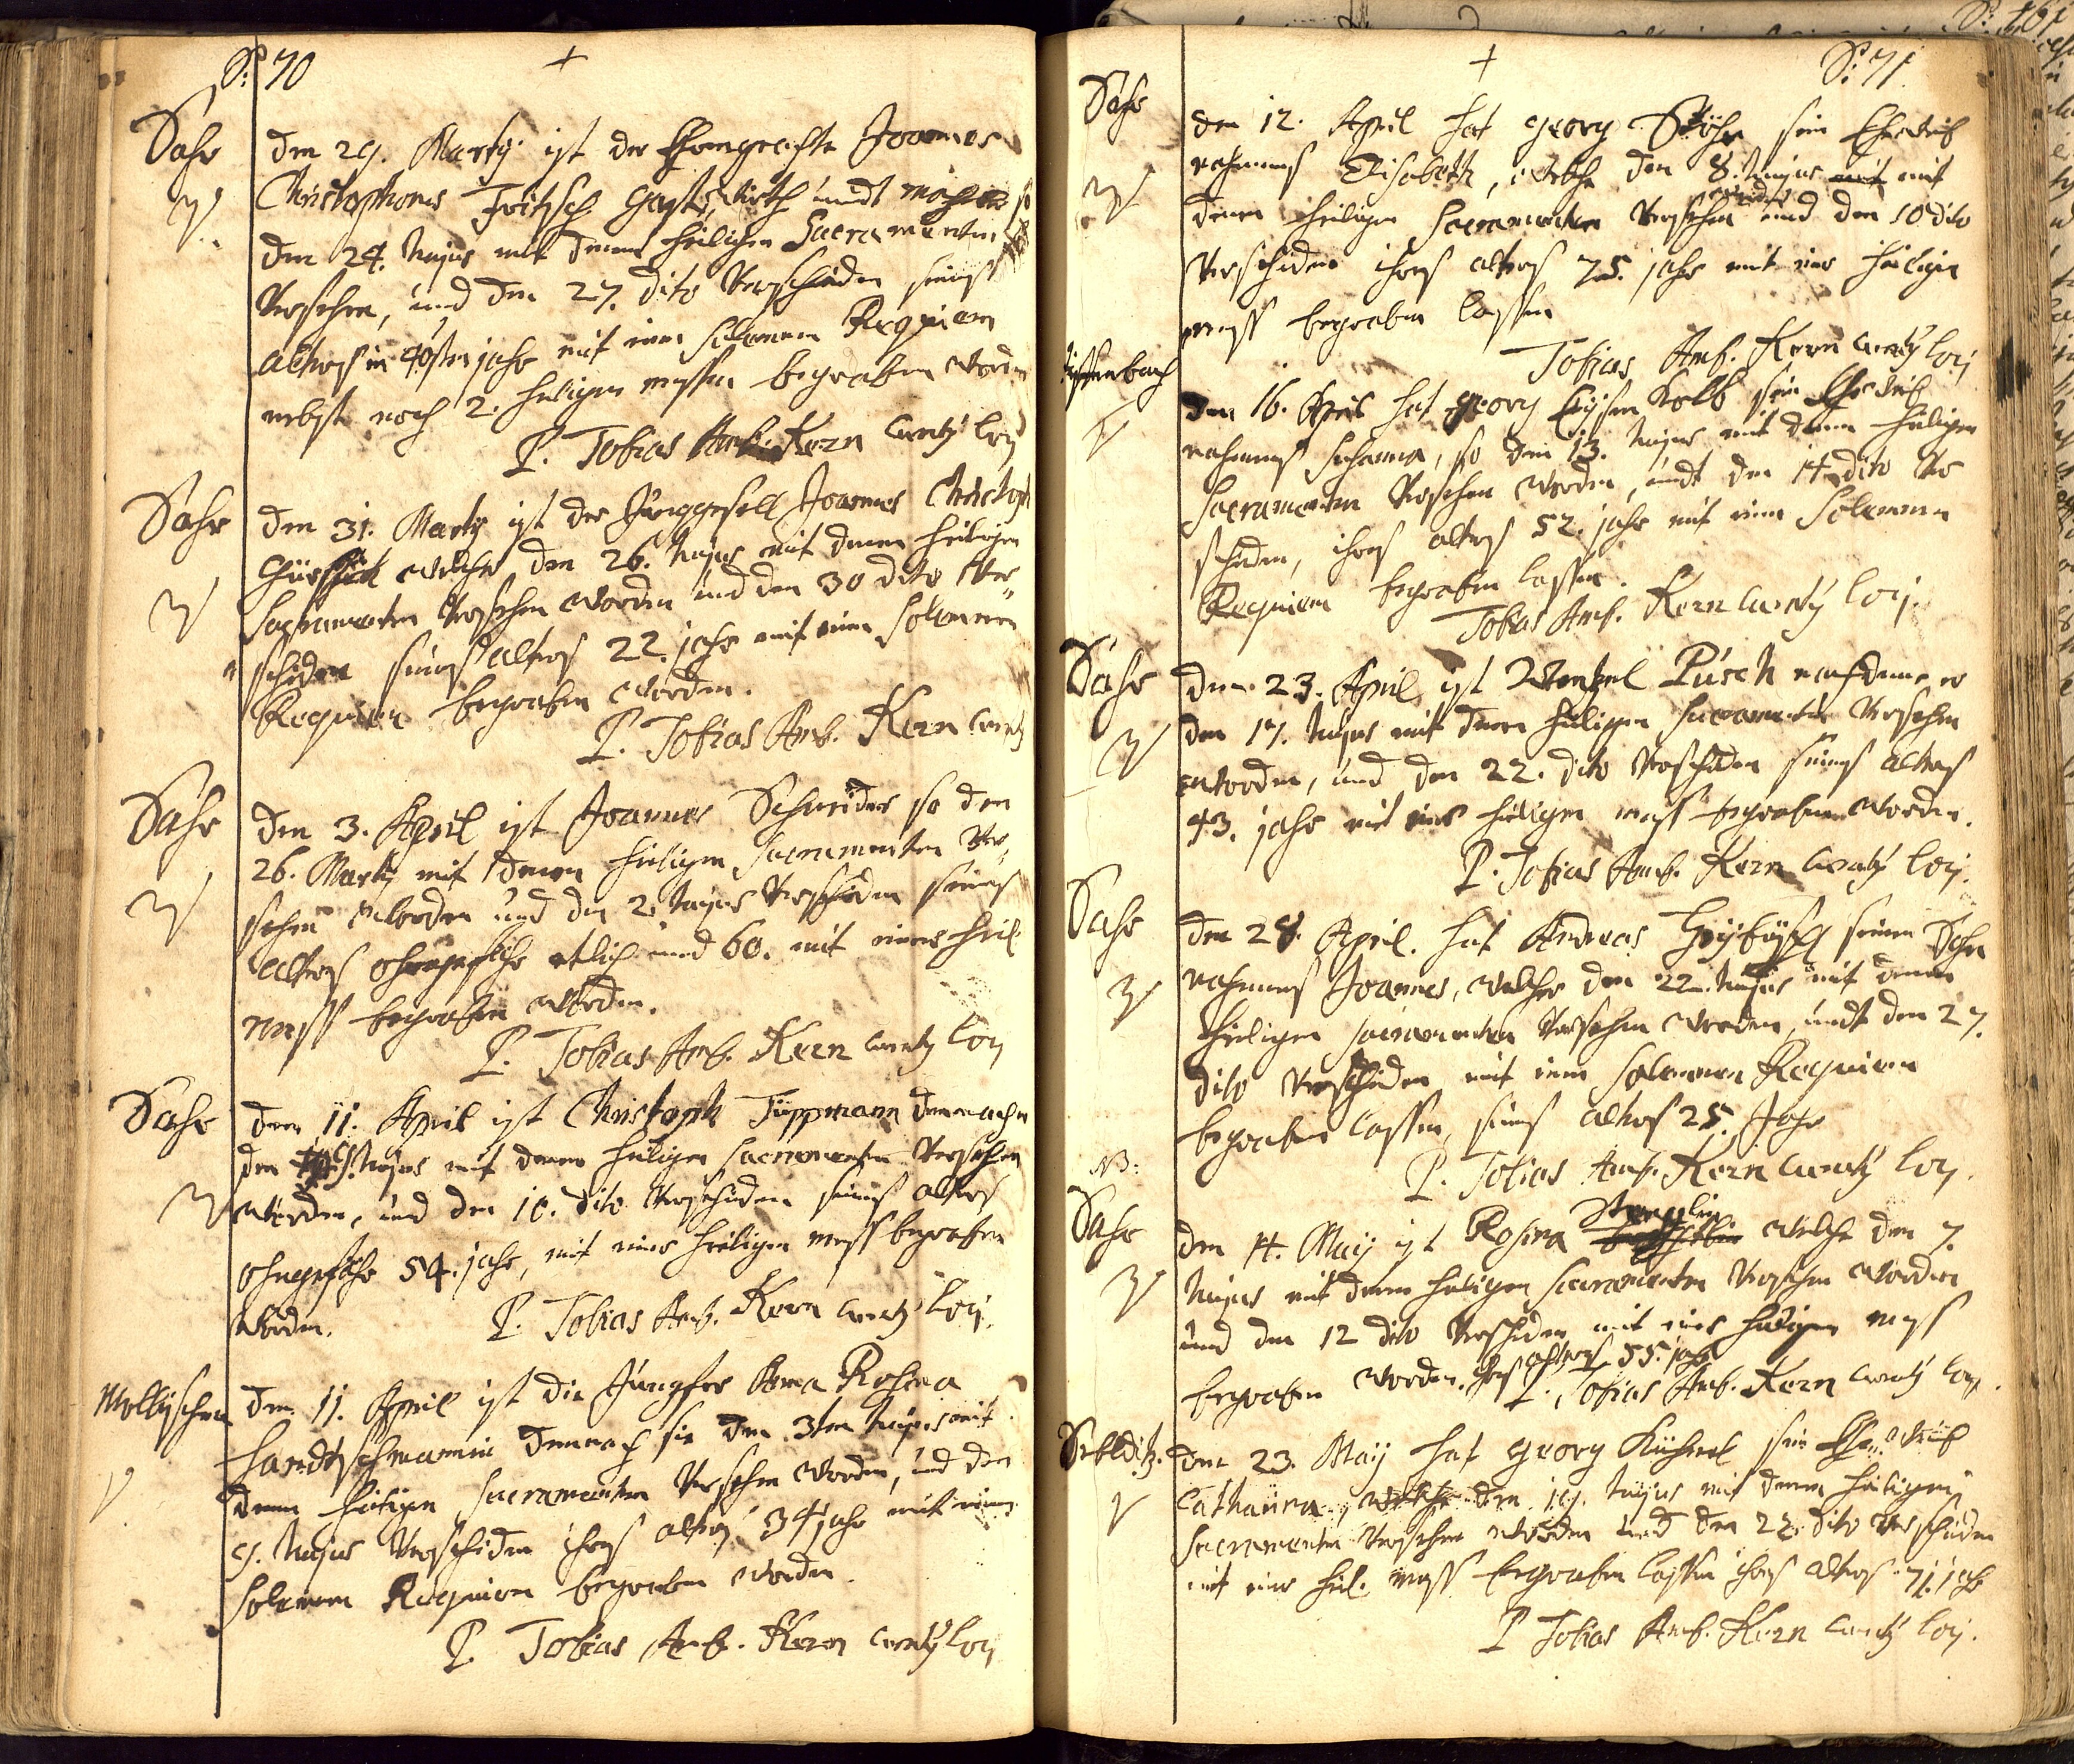 S: 70
+
Sahr
Den 29. Martij ist der Ehrengeachte Joannes
Christophorus Fritsch Gasts Wirth undt
den 24. hujus mit denen heiligen Sacramenten
Versehen, und den 27. dito Verschieden seines
alters in 40sten jahr mit einen Solemnen Requiem
nebst noch 2. heiligen messen begraben worden
P. Tobias Amb. Kern Curatq Loci
Sahr
Den 31. Martij ist der Junggesell Joannes Christoph
welcher den 26. hujus mit denen heiligen
Sacramenten Versehen worden und den 30 dito Ver
schieden seines alters 22. jahr mit einen Solemnen
Requiem begraben worden.
P. Tobias Amb. Kern Curatq
Sahr
Den 3. April ist Joannes Schneider so den
26. Martij mit denen heiligen Sacramenten Ver
sehen worden und den 2. hujus Verschieden seines
alters ohngefehr etlich und 60. mit einer heil.
mess begraben worden.
P. Tobias Amb. Kern Curatq Loci
Sahr
Den 11. April ist Christoph Tüppmann demnach er
den hujus mit denen heiligen Sacramenten Versehen
worden, und den 10. dito Verschieden seines alters
ohngefehr 54. jahr, mit einer heiligen mess begraben
worden. P. Tobias Amb. Kern Curatq Loci.
Den 11. April ist die Jungfer Anna Rosina
demnach sie den 3ten hujus mit
denen heiligen Sacramenten Versehen worden, und den
9. hujus Verschieden ihres alters 34 jahr mit einen
solemnen Requiem begraben worden.
P. Tobias Amb. Kern Curatq Loci
S: 71.
+
Sahr
Den 12. April hat Georg Stöhr sein Eheweib
nahmens Elisabeth, welche den 8. hujus mit
denen heiligen Sacramenten Versehen worden und den 10 dito
Verschieden ihres alters 75. jahr mit einer heiligen
mess begraben lassen
Tobias Amb. Kern Curatq Loci
Den 16. April hat Georg Kolb sein Eheweib
nahmens Johanna, so den 13. hujus mit denen heiligen
Sacramenten Versehen worden, undt den 14 dito Ver
schieden, ihres alters 52. jahr mit einen Solemnen
Requiem begraben lassen.
Tobias Amb. Kern Curatq Loci.
Sahr
Den 23. April ist Wentzel Püsch nachdeme er
den 17. hujus mit denen heiligen Sacramenten Versehen
worden, und den 22. dito Verschieden seines alters
43. jahr mit einer heiligen mess begraben worden.
P. Tobias Amb. Kern Curatq Loci.
Sahr
Den 28. April. hat Andreas seinen Sohn
nahmens Joannes, welcher den 22. hujus mit denen
heiligen Sacramenten Versehen worden, undt den 27.
dito Verschieden mit einen Solemnen Requiem
begraben lassen, seines alters 25. Jahr
NB:
P. Tobias Amb. Kern Curatq Loci.
Sahr
Den 14. Maij ist Rosina welche den 7.
hujus mit denen heiligen Sacramenten Versehen worden
und den 12 dito Verschieden mit einer heiligen mess
begraben worden. Ihres alters 55. jahr
P. Tobias Amb. Kern Curatq Loci.
Den 23. Maij hat Georg Kühnel sein Eheweib
Catharina, welche den 19. hujus mit denen heiligen
Sacramenten Versehen worden und den 22. dito Verschieden
mit einer heil. mess begraben lassen ihres alters 71. jahr
P Tobias Amb. Kern Curatq Loci.